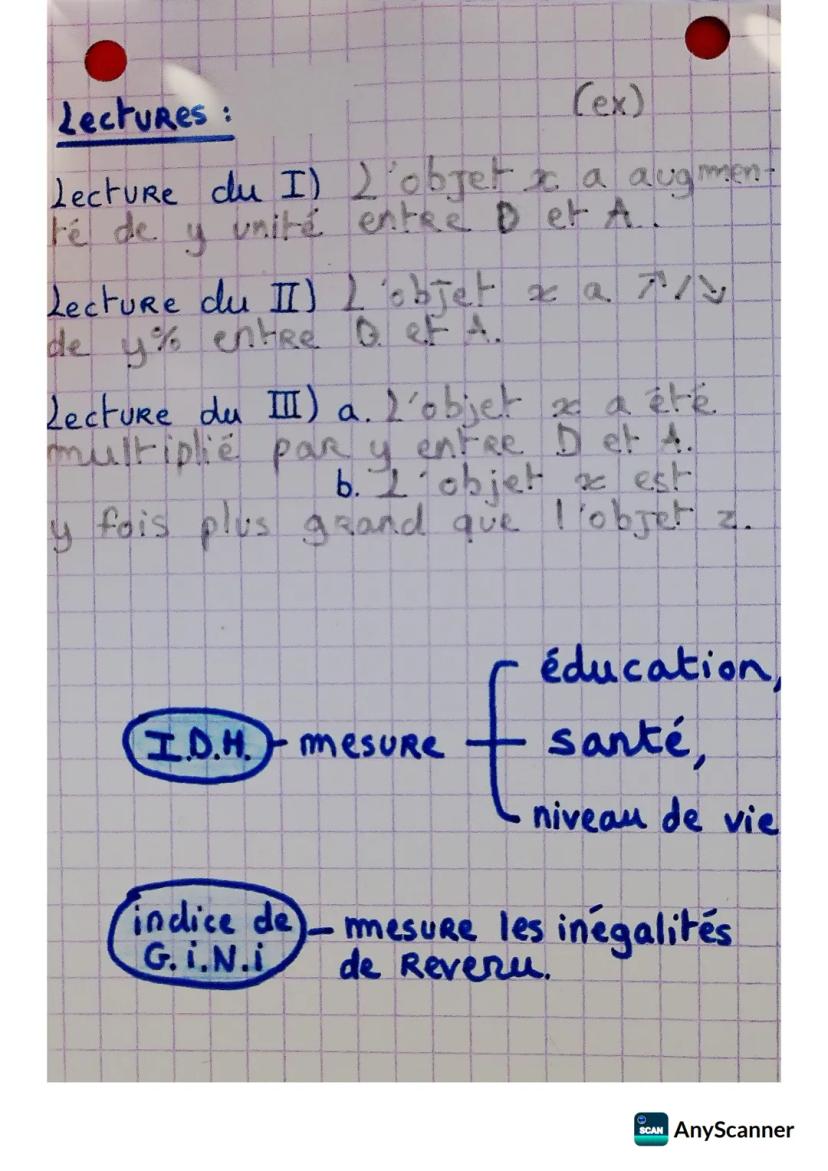 Lectures :
(ex)
Lecture du I) L'objet x a augmen-
té de y unité entre D et A.
Lecture du II) L'objet x a ↗/↘
de y% entre D et A.
Lecture du III) a. L'objet x a été
multiplié par y entre D et A.
b. L'objet x est
y fois plus grand que l'objet z.
éducation,
I.D.H. - mesure santé,
niveau de vie
indice de G.i.N.i - mesure les inégalités
de revenu.
SCAN AnyScanner